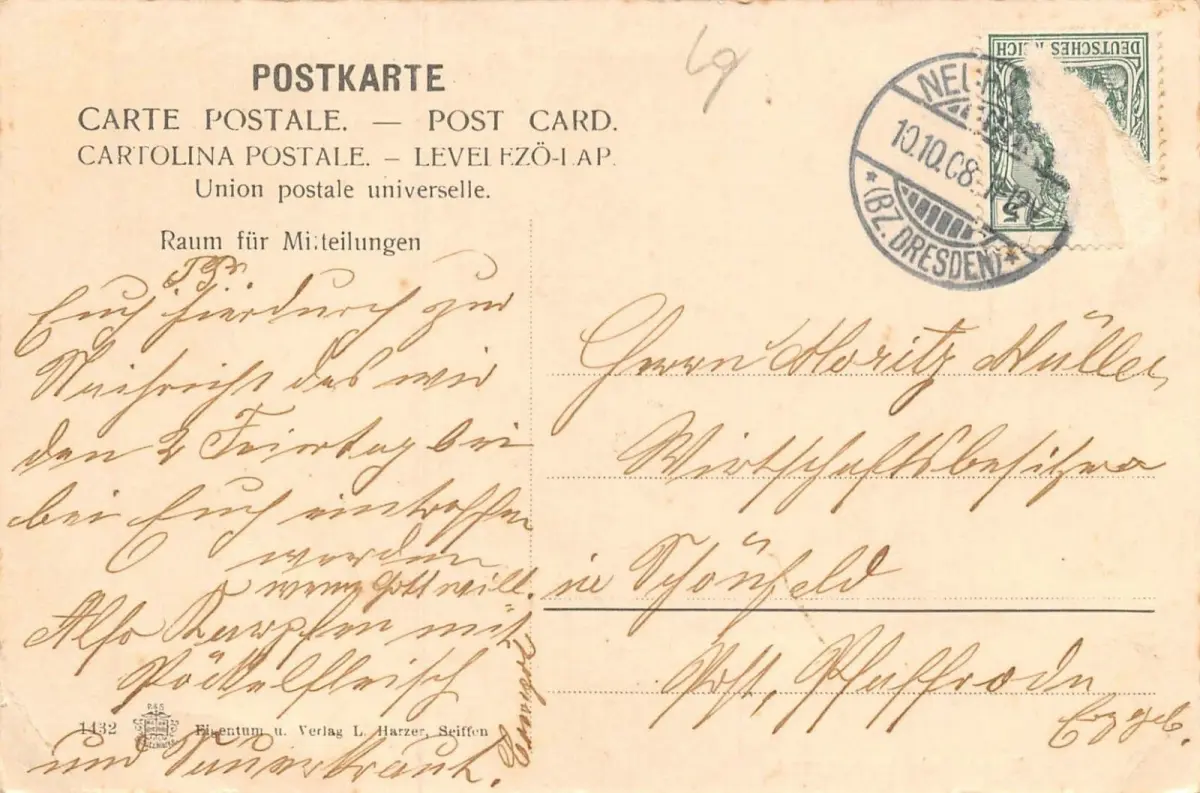 POSTKARTE
CARTE POSTALE. — POST CARD.
CARTOLINA POSTALE. – LEVELEZÖ-LAP.
Union postale universelle.
Raum für Mitteilungen
Euch hierdurch zur
Nachricht das wir
den 2 Feiertag bei
bei Euch eintreffen
werden
wenn Gott will.
Also Karpfen mit
Pöckelfleisch
und Sauerkraut.
1432
Eigentum u. Verlag L. Harzer, Seiffen
DEUTSCHES REICH
10.10.08.
(BZ. DRESDEN)
Herrn Moritz Müller
Wirtschaftsbesitzer
in Schönfeld
Post, Pfaffroda
Erzgeb.